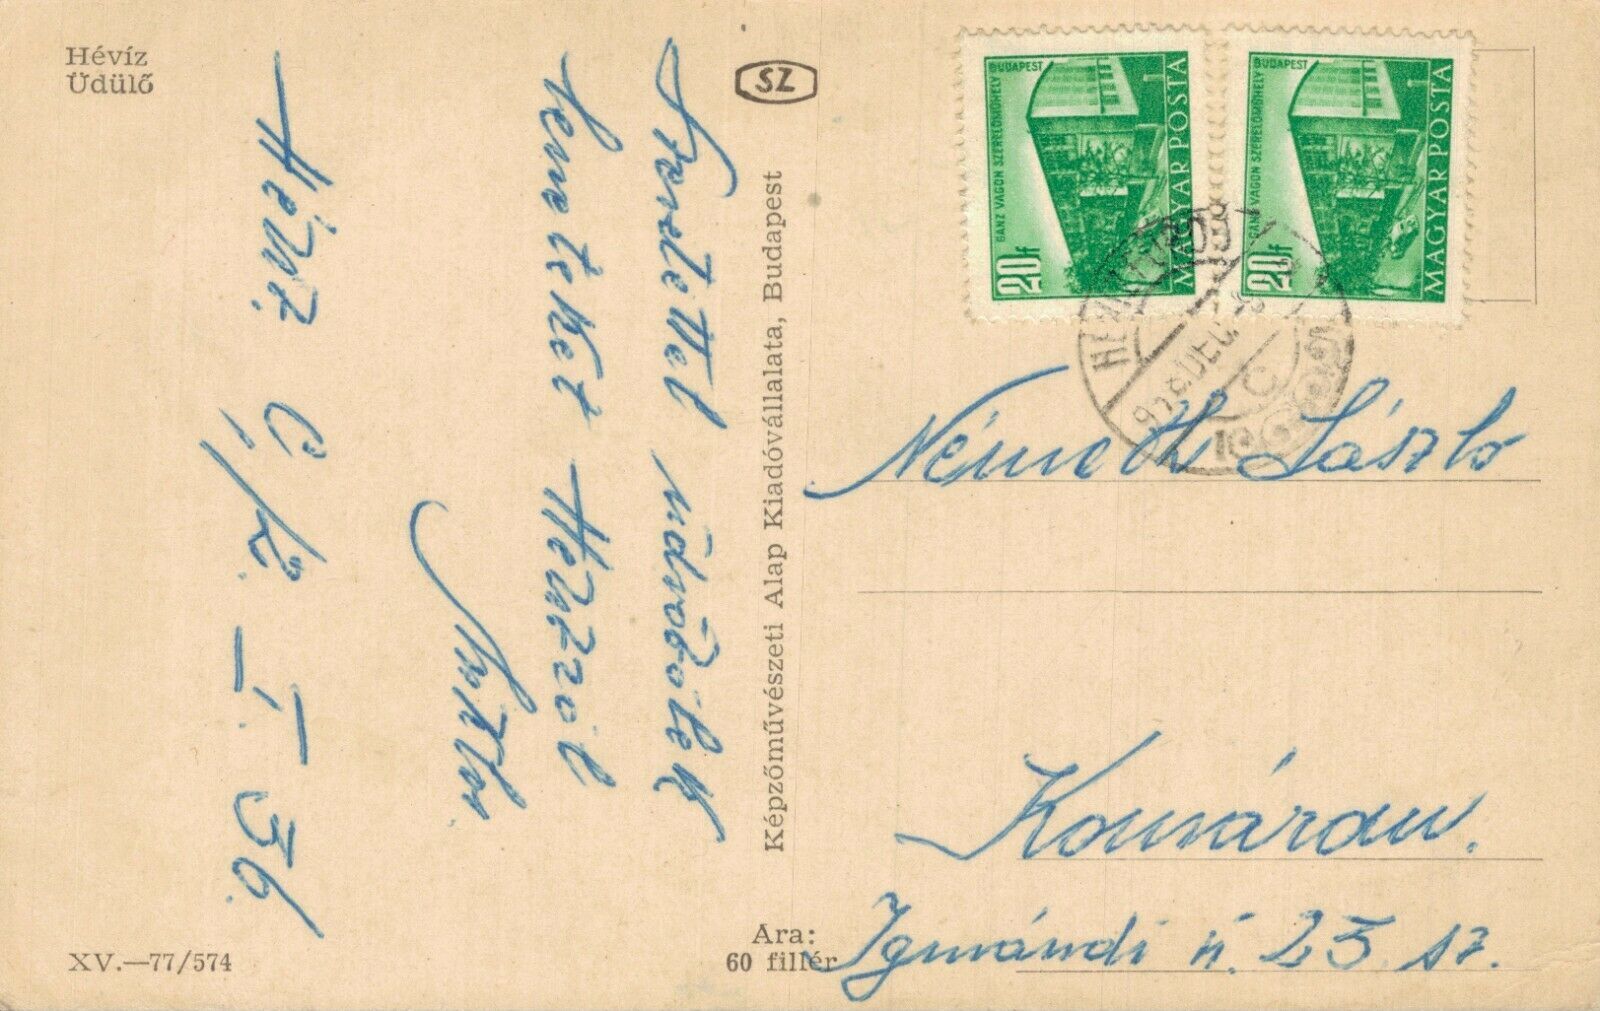 Hévíz
Üdülő
SZ
Szeretettel üdvözölek
benneteket Hévízről
Miklós.
Hévíz.
I. 36.
Képzőművészeti Alap Kiadóvállalata, Budapest
XV.—77/574
Ára:
60 fillér
GANZ VAGON SZERELŐMŰHELY BUDAPEST
20f
MAGYAR POSTA
GANZ VAGON SZERELŐMŰHELY BUDAPEST
20f
MAGYAR POSTA
DEC.
C
Németh László
Komárom.
Igmándi ú. 23 sz.